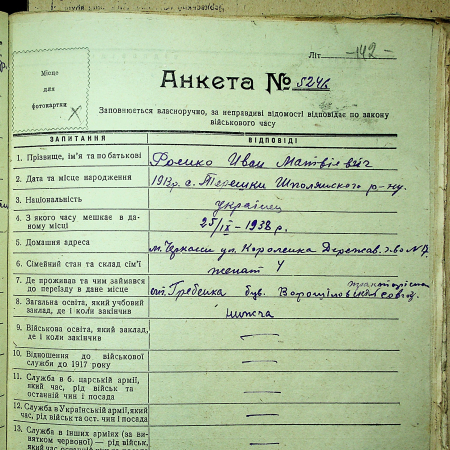 Літ -142-
Місце
для
фотокартки
Анкета № 5246
Заповнюється власноручно, за неправдиві відомості відповідає по закону
військового часу
ЗАПИТАННЯ ВІДПОВІДІ
1. Прізвище, ім'я та по батькові Фосико Иван Матвіевич
2. Дата та місце народження 1913 р. с. Терешки Шполянского р-ну.
3. Національність українец
4. З якого часу мешкає в да-
ному місці 25/IX - 1938 р.
5. Домашня адреса м. Черкассы ул. Короленка Держав.
6. Сімейний стан та склад сім'ї женат 4
7. Де проживав та чим займався
до переїзду в дане місце ст. Гребенка був.
8. Загальна освіта, який учбовий
заклад, де і коли закінчив нижча
9. Військова освіта, який заклад,
де і коли закінчив —
10. Відношення до військової
служби до 1917 року —
11. Служба в б. царській армії,
який час, рід військ та
останній чин і посада —
12. Служба в Українській армії, який
час, рід військ та ост. чин і посада —
13. Служба в інших арміях (за ви-
нятком червоної) — рід військ,